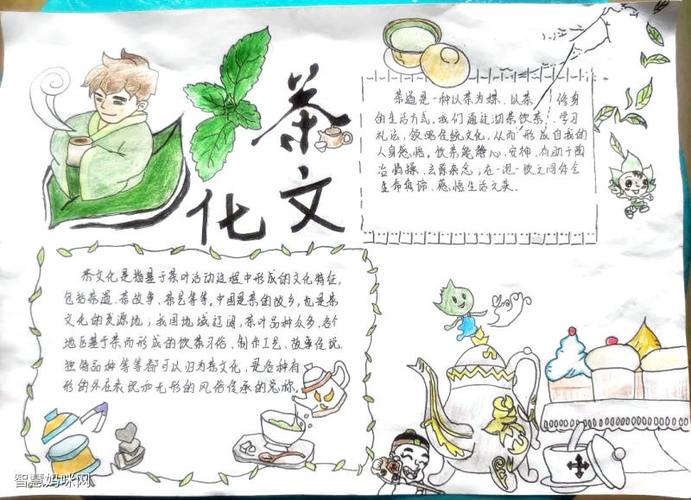 茶文化
茶道是一种以茶为媒、以茶修身
的生活方式。我们通过沏茶饮茶，学习
礼法、领略传统文化，从而形成自我的
人身感悟。饮茶能静心、安神，有助于陶
冶情操、去除杂念；在一泡一饮之间体会
生命真谛，感悟生活之美。
茶文化是指基于茶叶活动过程中形成的文化特征，
包括茶道、茶故事、茶艺等等。中国是茶的故乡，也是茶
文化的发源地；我国地域辽阔，茶叶品种众多，各个
地区基于茶而形成的饮茶习俗、制作工艺、故事传说、
独特品种等等都可以归为茶文化，是各种有
形的外在表现和无形的风俗传承的总称。
智慧妈咪网